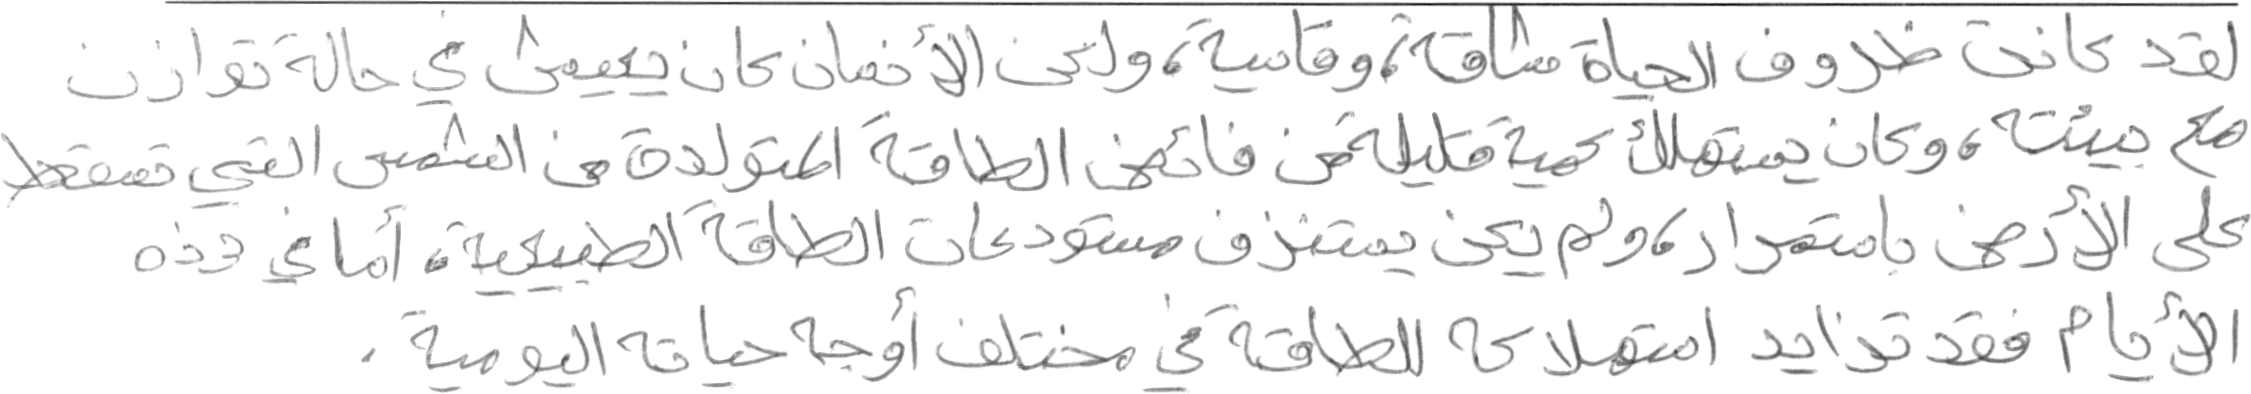 لقد كانت ظروف الحياة شاقة، وقاسية، ولكن الأنسان كان يعيش في حالة توازن
مع بيئته، وكان يستهلك كمية قليلة من فائض الطاقة المتولدة من الشمس التي تسقط
على الأرض باستمرار، ولم يكن يستنزف مستودعات الطاقة الطبيعية، أما في هذه
الأيام فقد تزايد استهلاكه للطاقة في مختلف أوجه حياته اليومية.